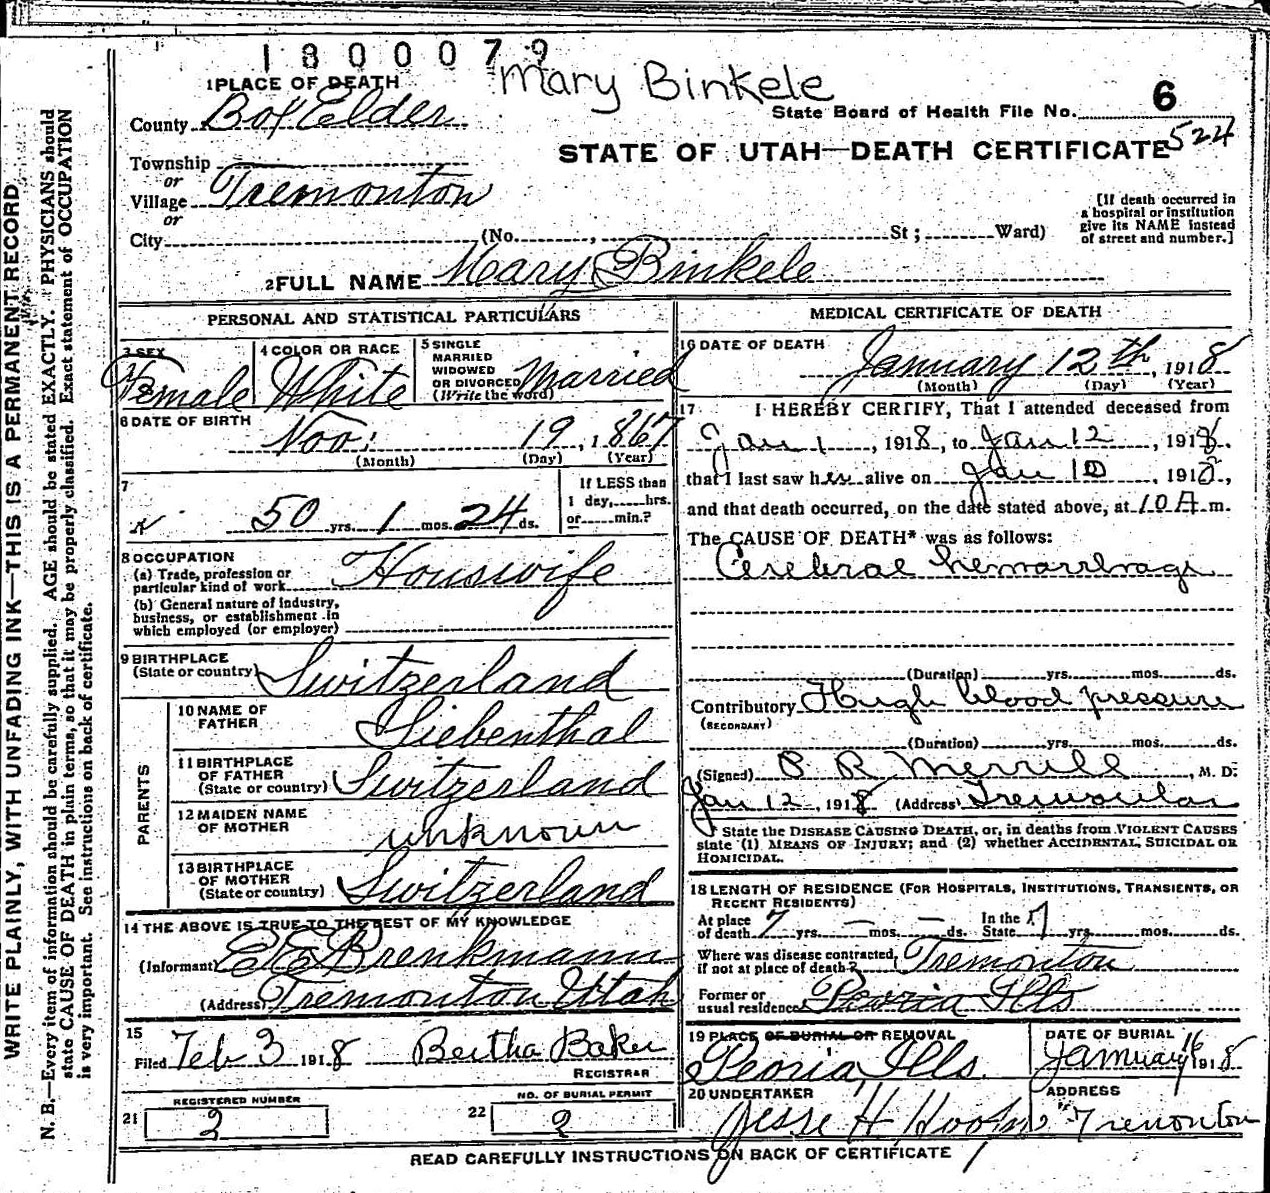 1800079
Mary Binkele
1 PLACE OF DEATH
County Box Elder
State Board of Health File No. 6
524
STATE OF UTAH—DEATH CERTIFICATE
Township
or
Village Tremonton
or
City (No. , St; Ward)
[If death occurred in
a hospital or institution
give its NAME instead
of street and number.]
2 FULL NAME Mary Binkele
PERSONAL AND STATISTICAL PARTICULARS
3 SEX
Female
4 COLOR OR RACE
White
5 SINGLE
MARRIED
WIDOWED
OR DIVORCED
(Write the word)
Married
6 DATE OF BIRTH
Nov. 19, 1867
(Month) (Day) (Year)
7
50 yrs. 1 mos. 24 ds.
If LESS than
1 day, hrs.
or min.?
8 OCCUPATION
(a) Trade, profession or
particular kind of work Houswife
(b) General nature of industry,
business, or establishment in
which employed (or employer)
9 BIRTHPLACE
(State or country) Switzerland
PARENTS
10 NAME OF
FATHER Siebenthal
11 BIRTHPLACE
OF FATHER
(State or country) Switzerland
12 MAIDEN NAME
OF MOTHER unknown
13 BIRTHPLACE
OF MOTHER
(State or country) Switzerland
14 THE ABOVE IS TRUE TO THE BEST OF MY KNOWLEDGE
(Informant) E E Brenkmann
(Address) Tremonton Utah
15
Filed Feb 3 1918 Bertha Baker
REGISTRAR
21 REGISTERED NUMBER
2
22 NO. OF BURIAL PERMIT
2
MEDICAL CERTIFICATE OF DEATH
16 DATE OF DEATH
January 12th, 1918
(Month) (Day) (Year)
17 I HEREBY CERTIFY, That I attended deceased from
Jan 1, 1918, to Jan 12, 1918,
that I last saw her alive on Jan 10, 1918,
and that death occurred, on the date stated above, at 10 A m.
The CAUSE OF DEATH* was as follows:
Cerebral hemorrhage
(Duration) yrs. mos. ds.
Contributory High blood pressure
(SECONDARY)
(Duration) yrs. mos. ds.
(Signed) P R Merrill, M. D.
Jan 12, 1918 (Address) Tremonton
* State the DISEASE CAUSING DEATH, or, in deaths from VIOLENT CAUSES
state (1) MEANS OF INJURY; and (2) whether ACCIDENTAL, SUICIDAL OR
HOMICIDAL.
18 LENGTH OF RESIDENCE (FOR HOSPITALS, INSTITUTIONS, TRANSIENTS, OR
RECENT RESIDENTS)
At place
of death 7 yrs. — mos. — ds. In the
State 7 yrs. mos. ds.
Where was disease contracted,
if not at place of death? Tremonton
Former or
usual residence Peoria Ills
19 PLACE OF BURIAL OR REMOVAL
Peoria, Ills.
DATE OF BURIAL
January 16 1918
20 UNDERTAKER
Jesse H
ADDRESS
Tremonton
READ CAREFULLY INSTRUCTIONS ON BACK OF CERTIFICATE
WRITE PLAINLY, WITH UNFADING INK—THIS IS A PERMANENT RECORD
N. B.—Every item of information should be carefully supplied. AGE should be stated EXACTLY. PHYSICIANS should
state CAUSE OF DEATH in plain terms, so that it may be properly classified. Exact statement of OCCUPATION
is very important. See instructions on back of certificate.